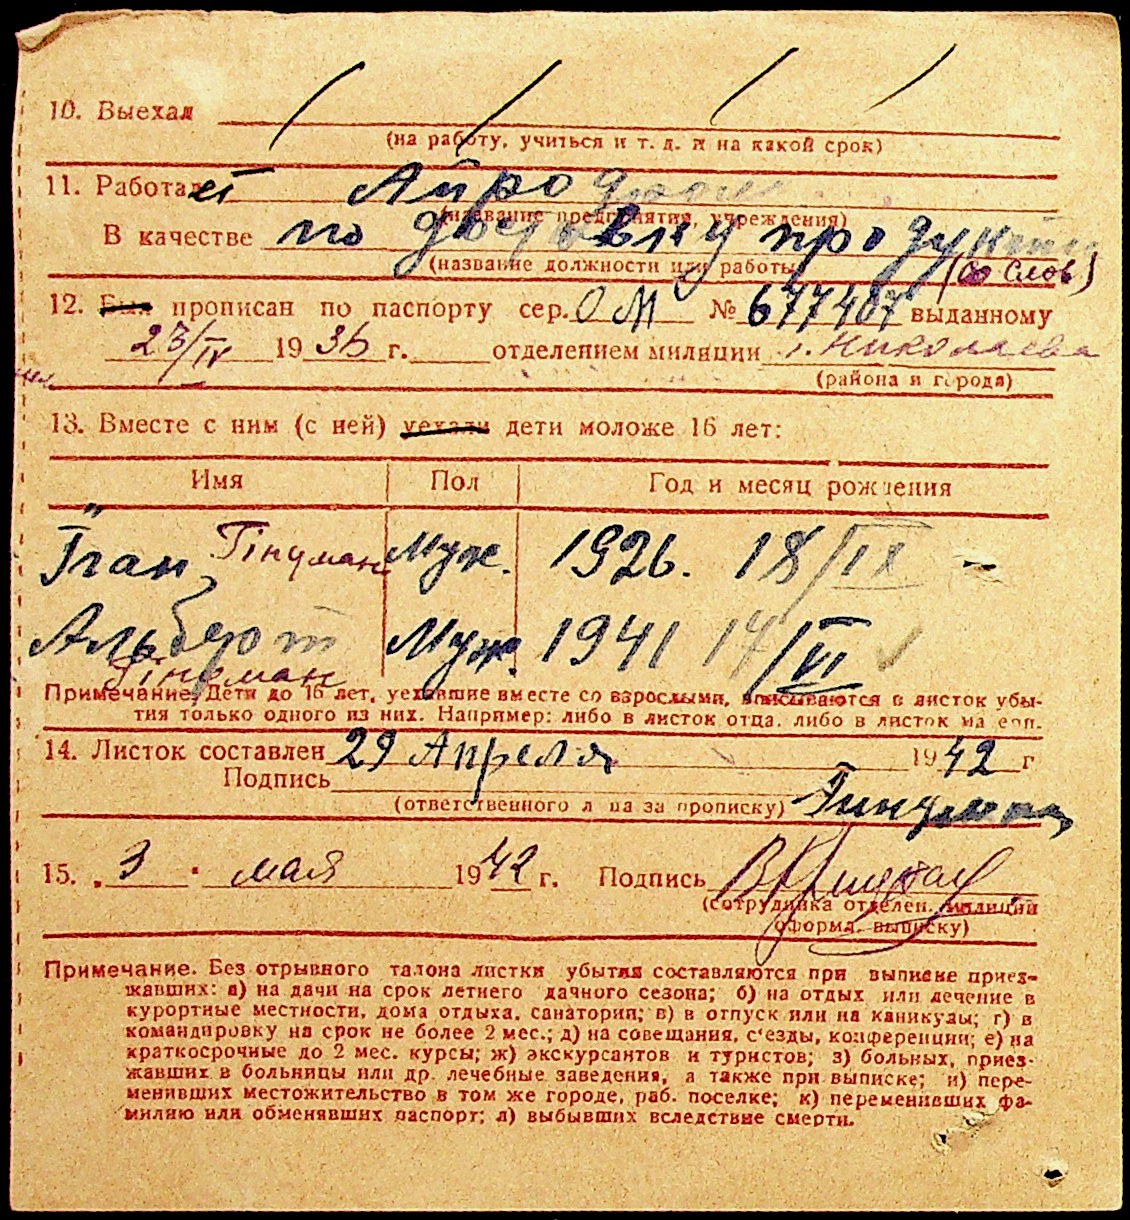 10. Выехал
(на работу, учиться и т. д. и на какой срок)
11. Работает
(название предприятия, учреждения)
В качестве по доставки продуктов
(название должности или работы) (со слов)
12. Был прописан по паспорту сер. ОМ № 677487 выданному
23/IV 1936 г. отделением милиции г. Николаева
(района и города)
13. Вместе с ним (с ней) уехали дети моложе 16 лет:
Имя Пол Год и месяц рождения
Їган Гінцман Муж. 1926. 18/IX
Альберт Муж. 1941 14/VI
Гінцман
Примечание. Дети до 16 лет, уехавшие вместе со взрослыми, вписываются в листок убы-
тия только одного из них. Например: либо в листок отца, либо в листок матери.
14. Листок составлен 29 Апреля 1942 г
Подпись
(ответственного лица за прописку) Гинцман
15. 3 " мая 1942 г. Подпись
(сотрудника отделен. милиции
оформл. выписку)
Примечание. Без отрывного талона листки убытия составляются при выписке приез-
жавших: а) на дачи на срок летнего дачного сезона; б) на отдых или лечение в
курортные местности, дома отдыха, санатории; в) в отпуск или на каникулы; г) в
командировку на срок не более 2 мес.; д) на совещания, с'езды, конференции; е) на
краткосрочные до 2 мес. курсы; ж) экскурсантов и туристов; з) больных, приез-
жавших в больницы или др. лечебные заведения, а также при выписке; и) пере-
менивших местожительство в том же городе, раб. поселке; к) переменивших фа-
милию или обменявших паспорт; л) выбывших вследствие смерти.